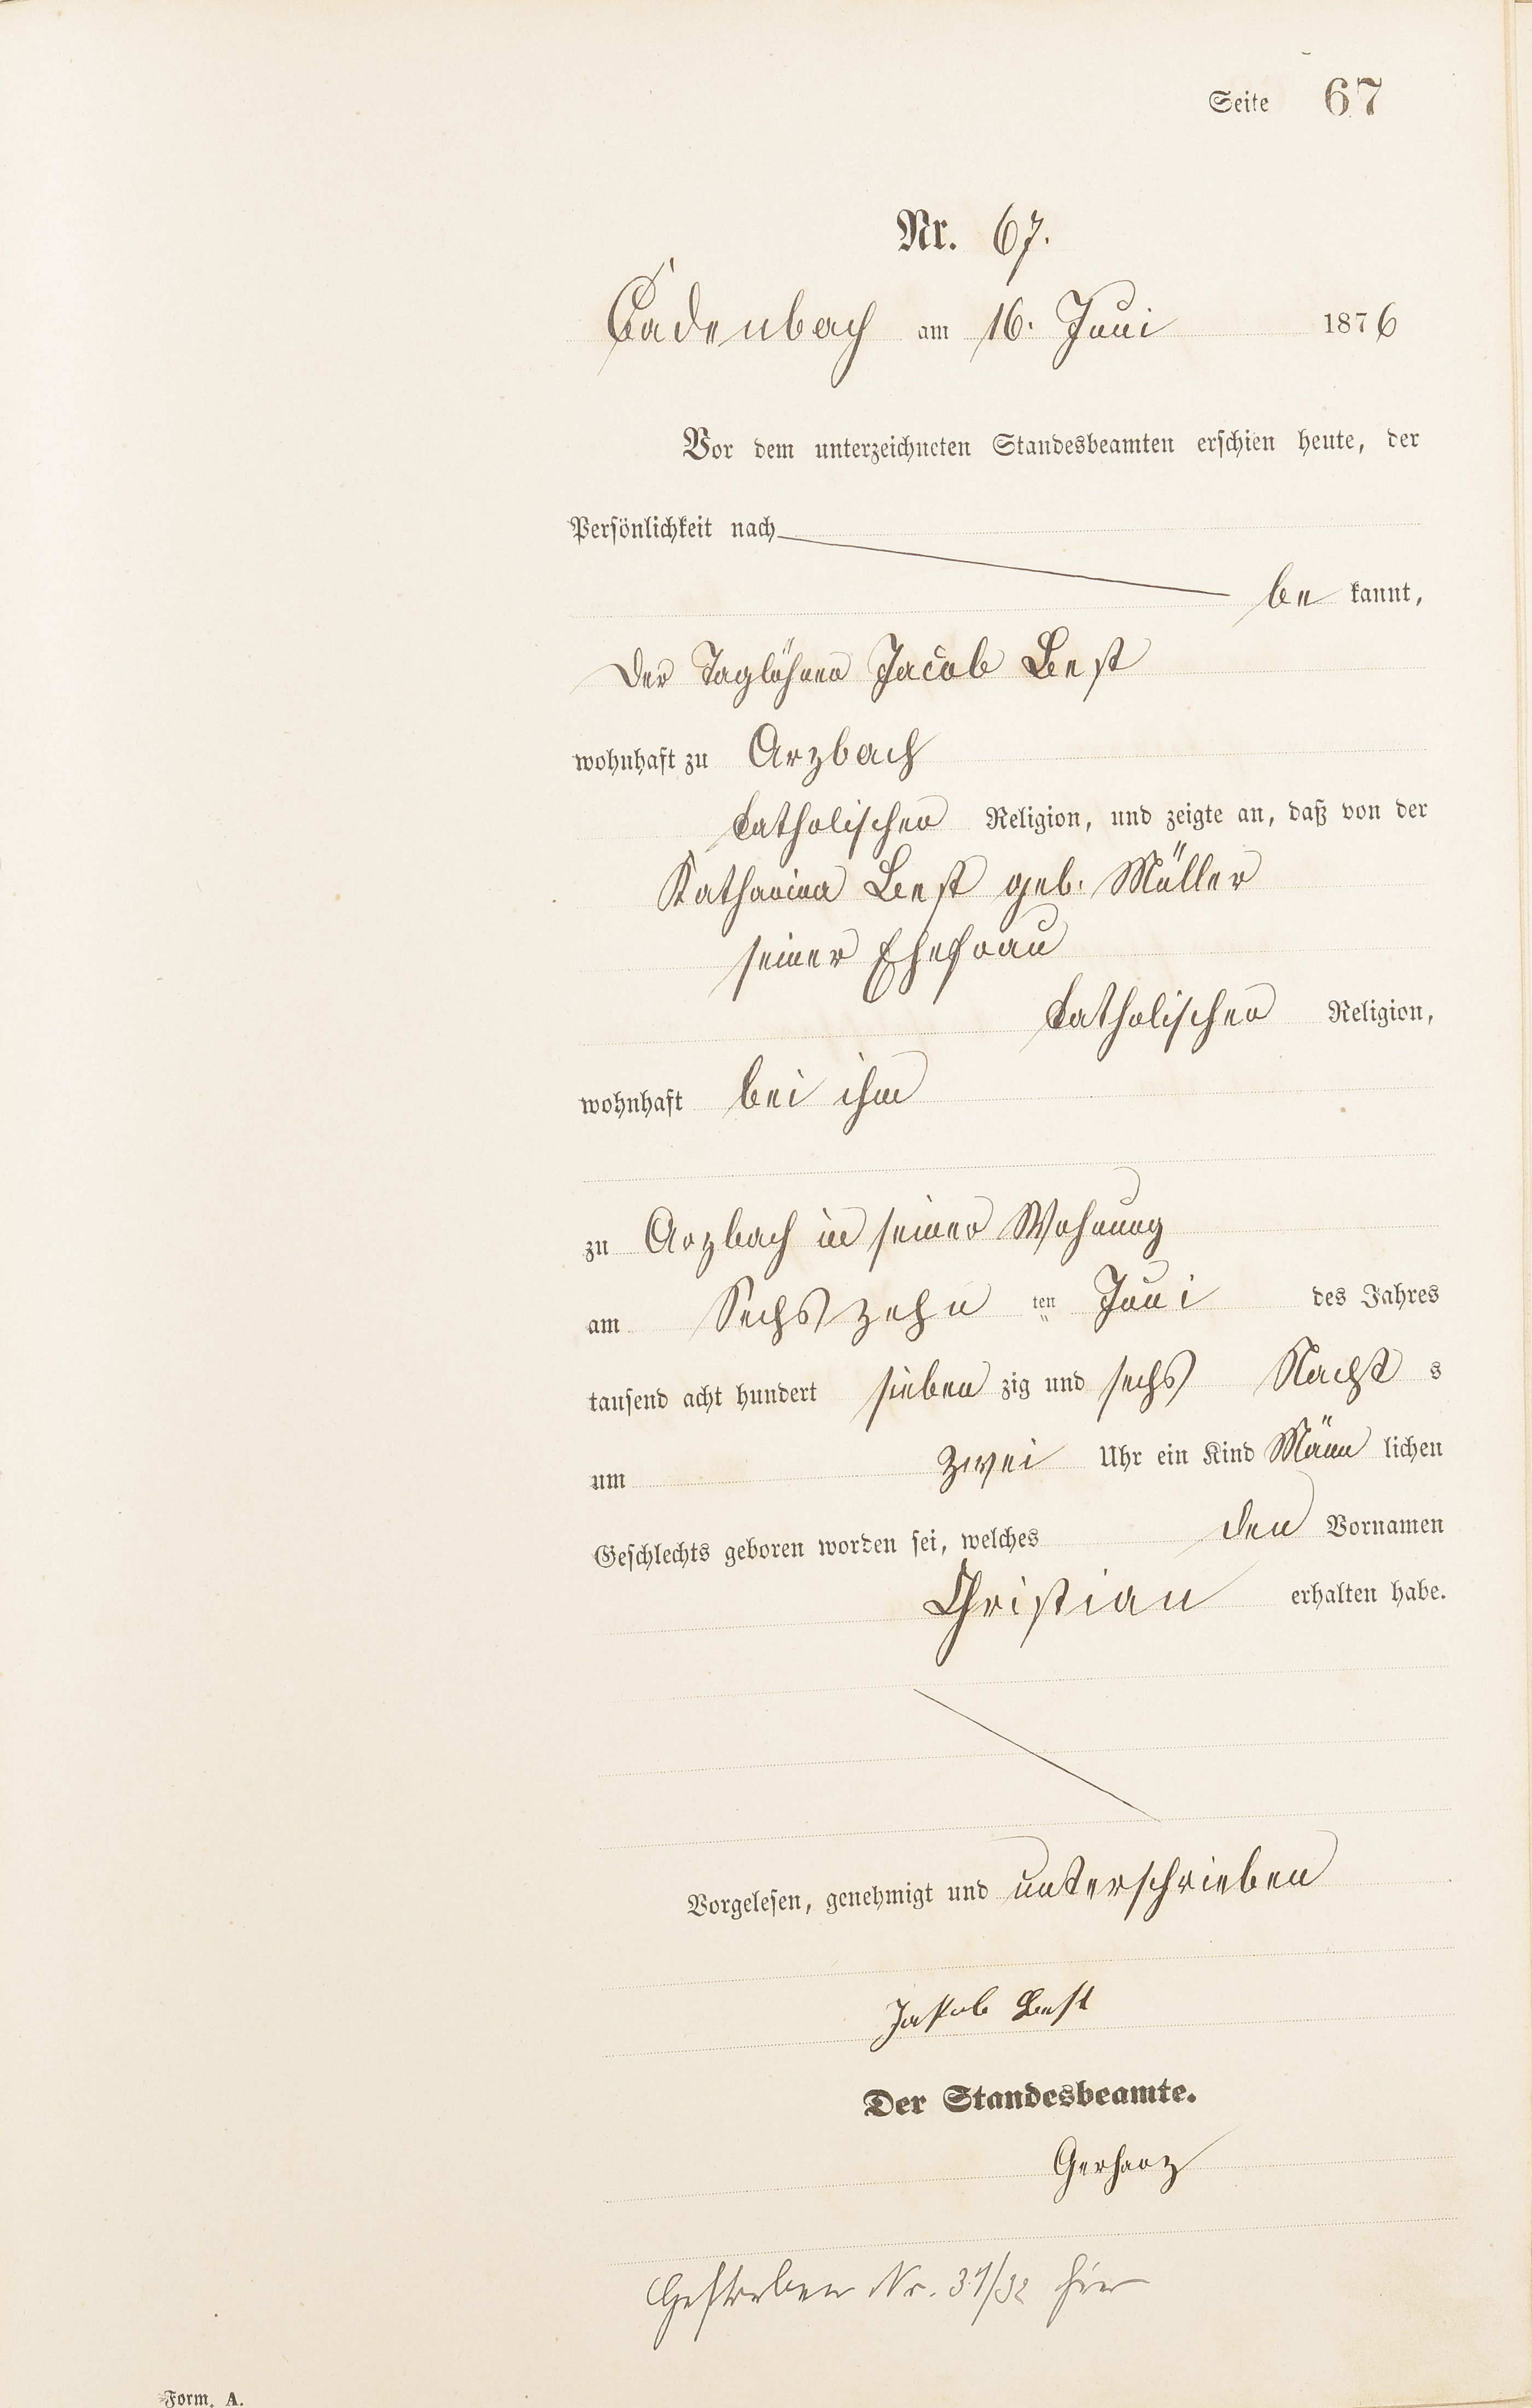 Seite 67
Nr. 67.
Cadenbach am 16. Juni 1876
Vor dem unterzeichneten Standesbeamten erschien heute, der
Persönlichkeit nach
be kannt,
der Taglöhner Jacob Best
wohnhaft zu Arzbach
katholischer Religion, und zeigte an, daß von der
Katharina Best geb. Müller
seiner Ehefrau
katholischer Religion,
wohnhaft bei ihm
zu Arzbach in seiner Wohnung
am Sechszehn ten Juni des Jahres
tausend acht hundert sieben zig und sechs Nacht s
um zwei Uhr ein Kind Männ lichen
Geschlechts geboren worden sei, welches den Vornamen
Christian erhalten habe.
Vorgelesen, genehmigt und unterschrieben
Jakob Best
Der Standesbeamte.
Gerharz
Gestorben Nr. 31/32 hier
Form. A.